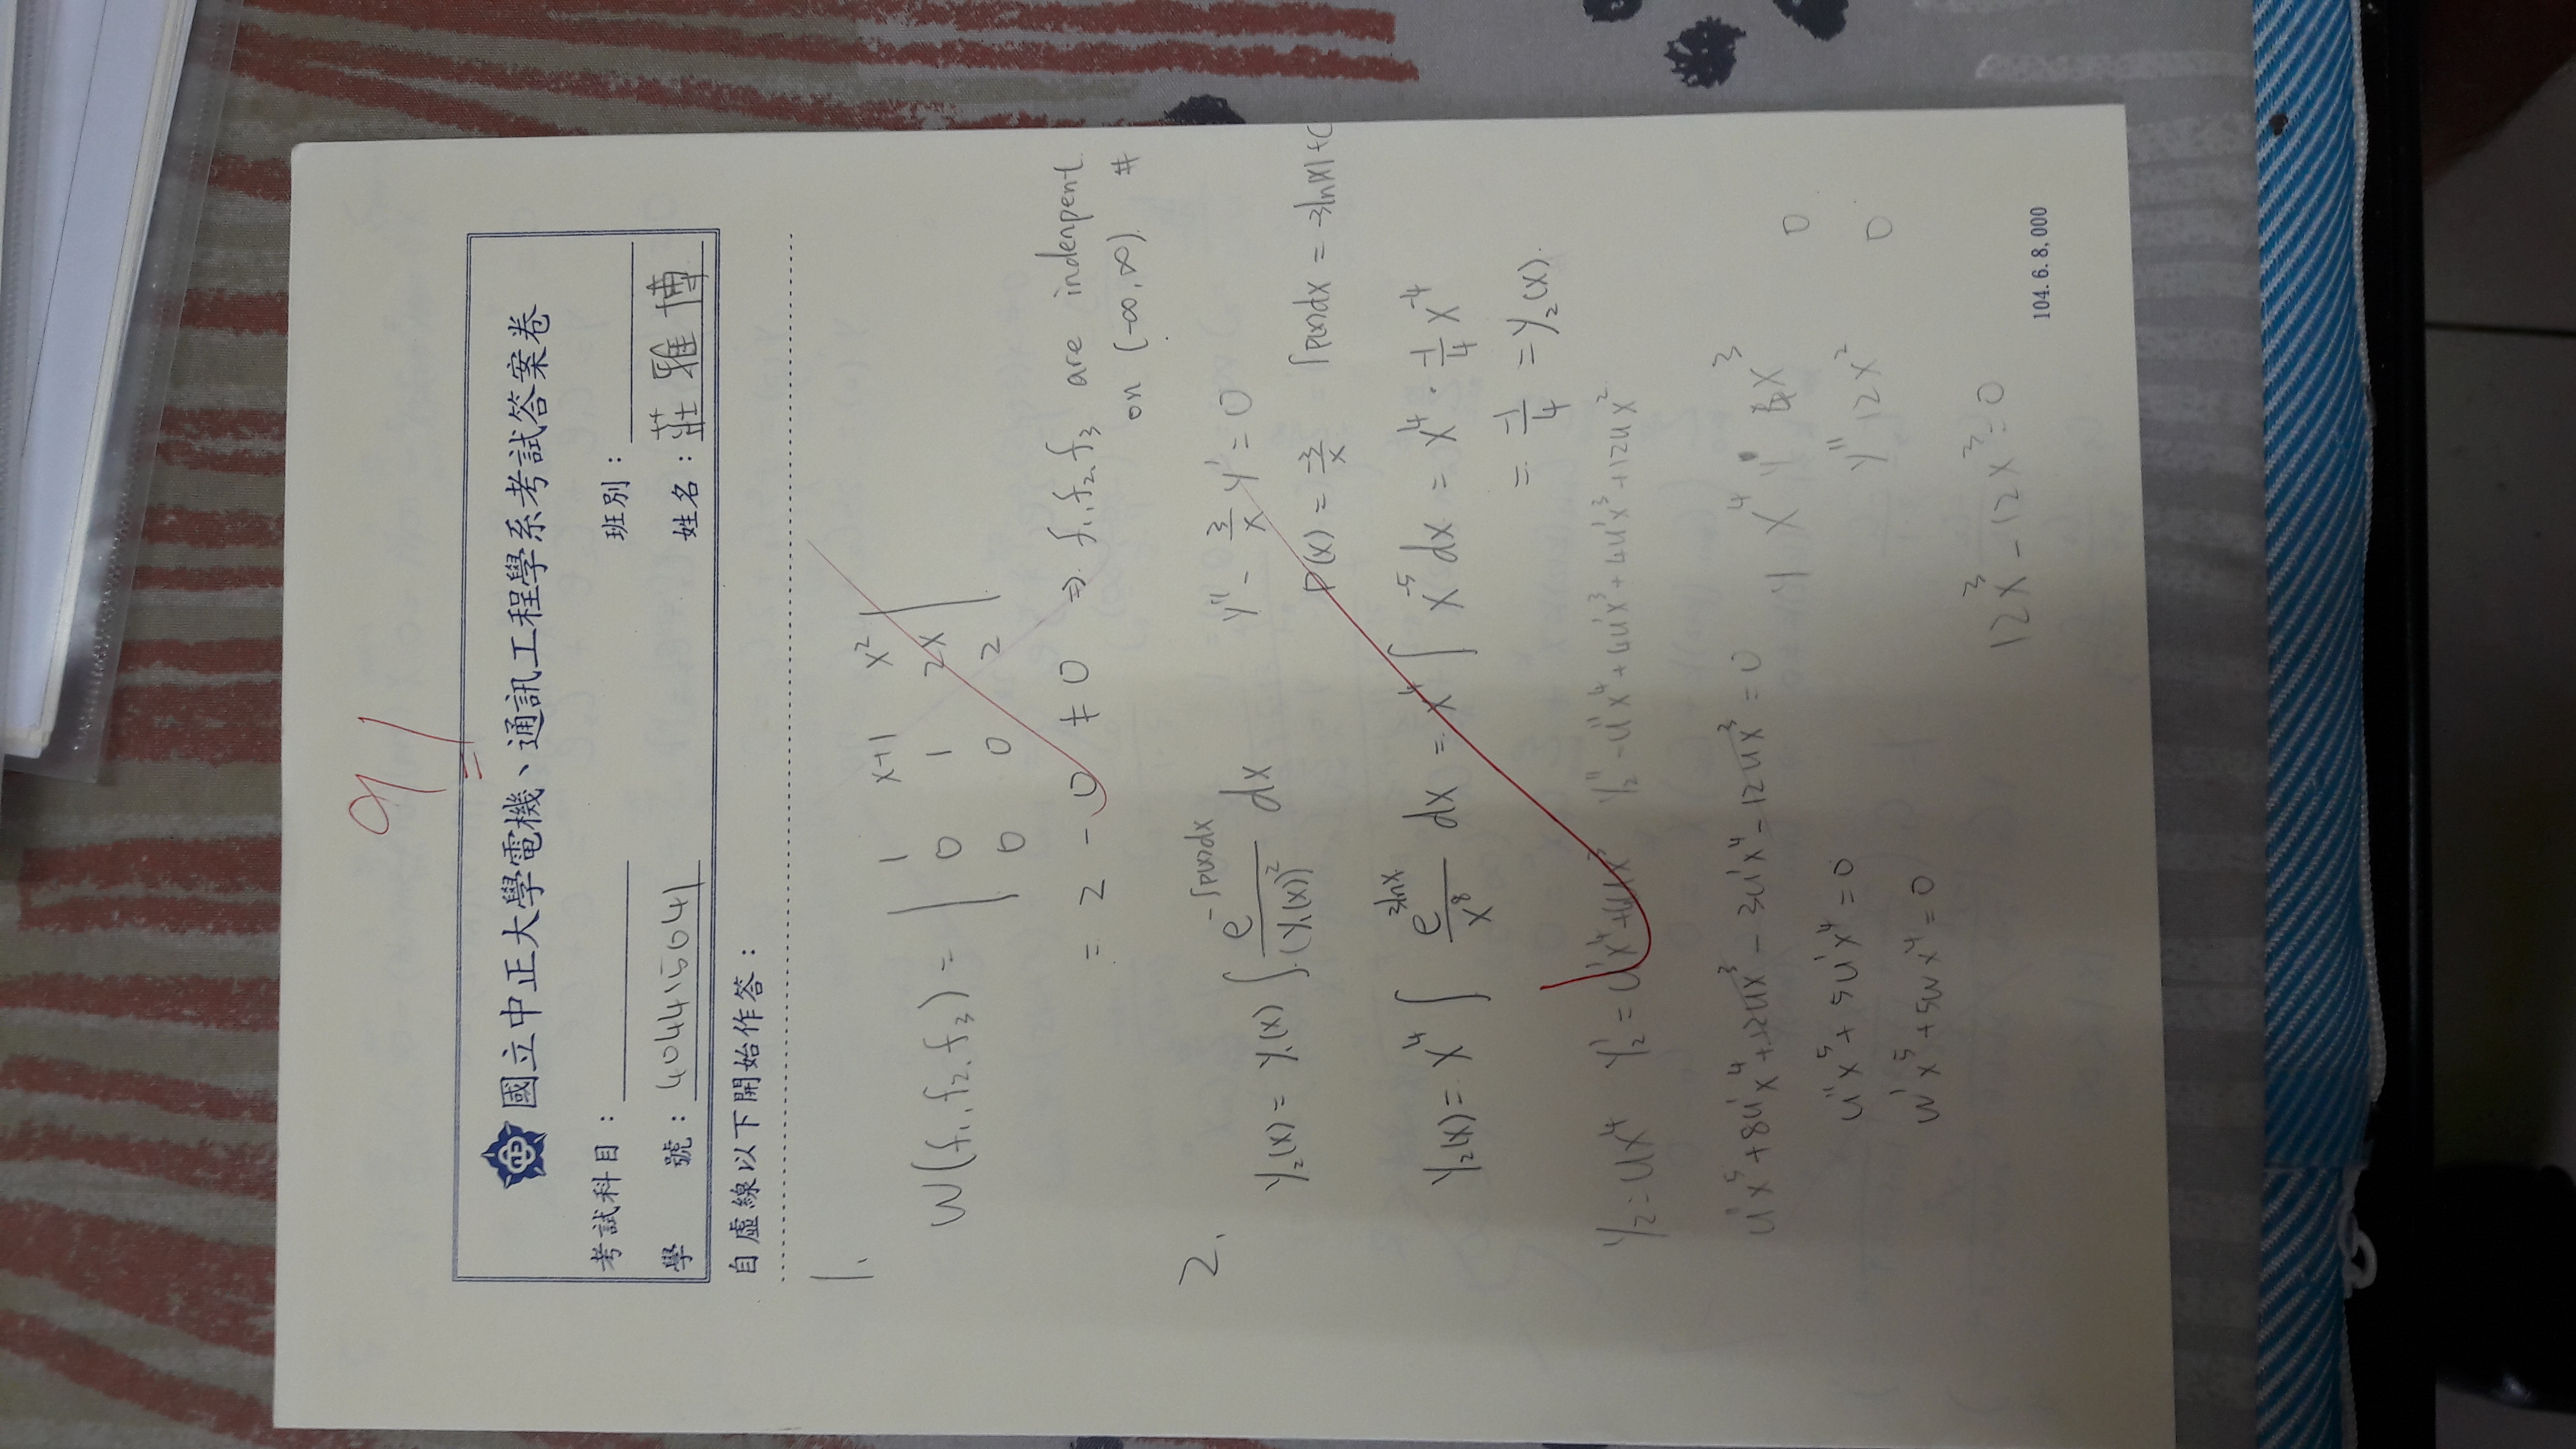 91
國立中正大學電機、通訊工程學系考試答案卷
考試科目：
班別：
學 號：404415041
姓名：莊雅博
自虛線以下開始作答：
1.
W(f₁, f₂, f₃) = | 1 x+1 x² |
| 0 1 2x |
| 0 0 2 |
= 2 - 0 ≠ 0 ⇒ f₁, f₂, f₃ are indenpent
on (-∞, ∞). #
2.
y₂(x) = y₁(x) ∫ e^(-∫p(x)dx) / (y₁(x))² dx
y'' - 3/x y' = 0
P(x) = -3/x ∫p(x)dx = -3ln|x| + C
y₂(x) = x⁴ ∫ e^(3lnx) / x⁸ dx = x⁴ ∫ x⁻⁵ dx = x⁴ · -1/4 x⁻⁴
= -1/4 = y₂(x).
y₂ = ux⁴ y₂' = u'x⁴ + 4ux³ y₂'' = u''x⁴ + 4u'x³ + 4u'x³ + 12ux²
u'x⁵ + 8u'x⁴ + 12ux³ - 3u'x⁴ - 12ux³ = 0
y x⁴ y' 4x³ 0
u''x⁵ + 5u'x⁴ = 0
y'' 12x² 0
w'x⁵ + 5wx⁴ = 0
12x³ - 12x³ = 0
104. 6. 8,000